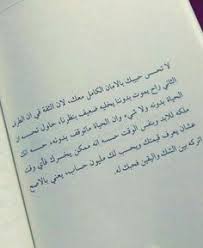 لا تحسس حبيبك بالامان الكامل معك، لان الثقة في ان الطرف
الثاني راح يموت بدوننا يخليه ضعيف بنظرنا، حاول تحسسه ان
الحياة بدونه ولا شيء وان الحياة ماتوقف بدونه، حسسه انك
ملكه للابد وبنفس الوقت حسسه انه ممكن يخسرك فأي وقت
عشان يعرف قيمتك ويحسب لك مليون حساب، يعني بالاصح
اتركه بين الشك واليقين فحبك له.